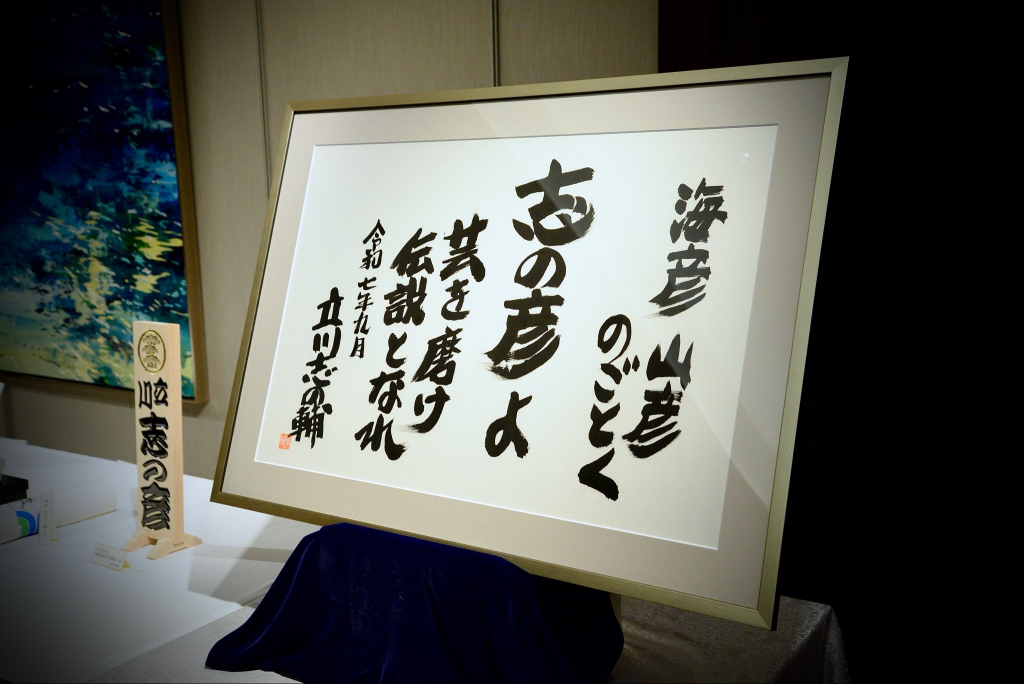 海彦
山彦
のごとく
志の彦よ
芸を磨け
伝説となれ
令和七年九月
立川志の輔
立川
志の彦